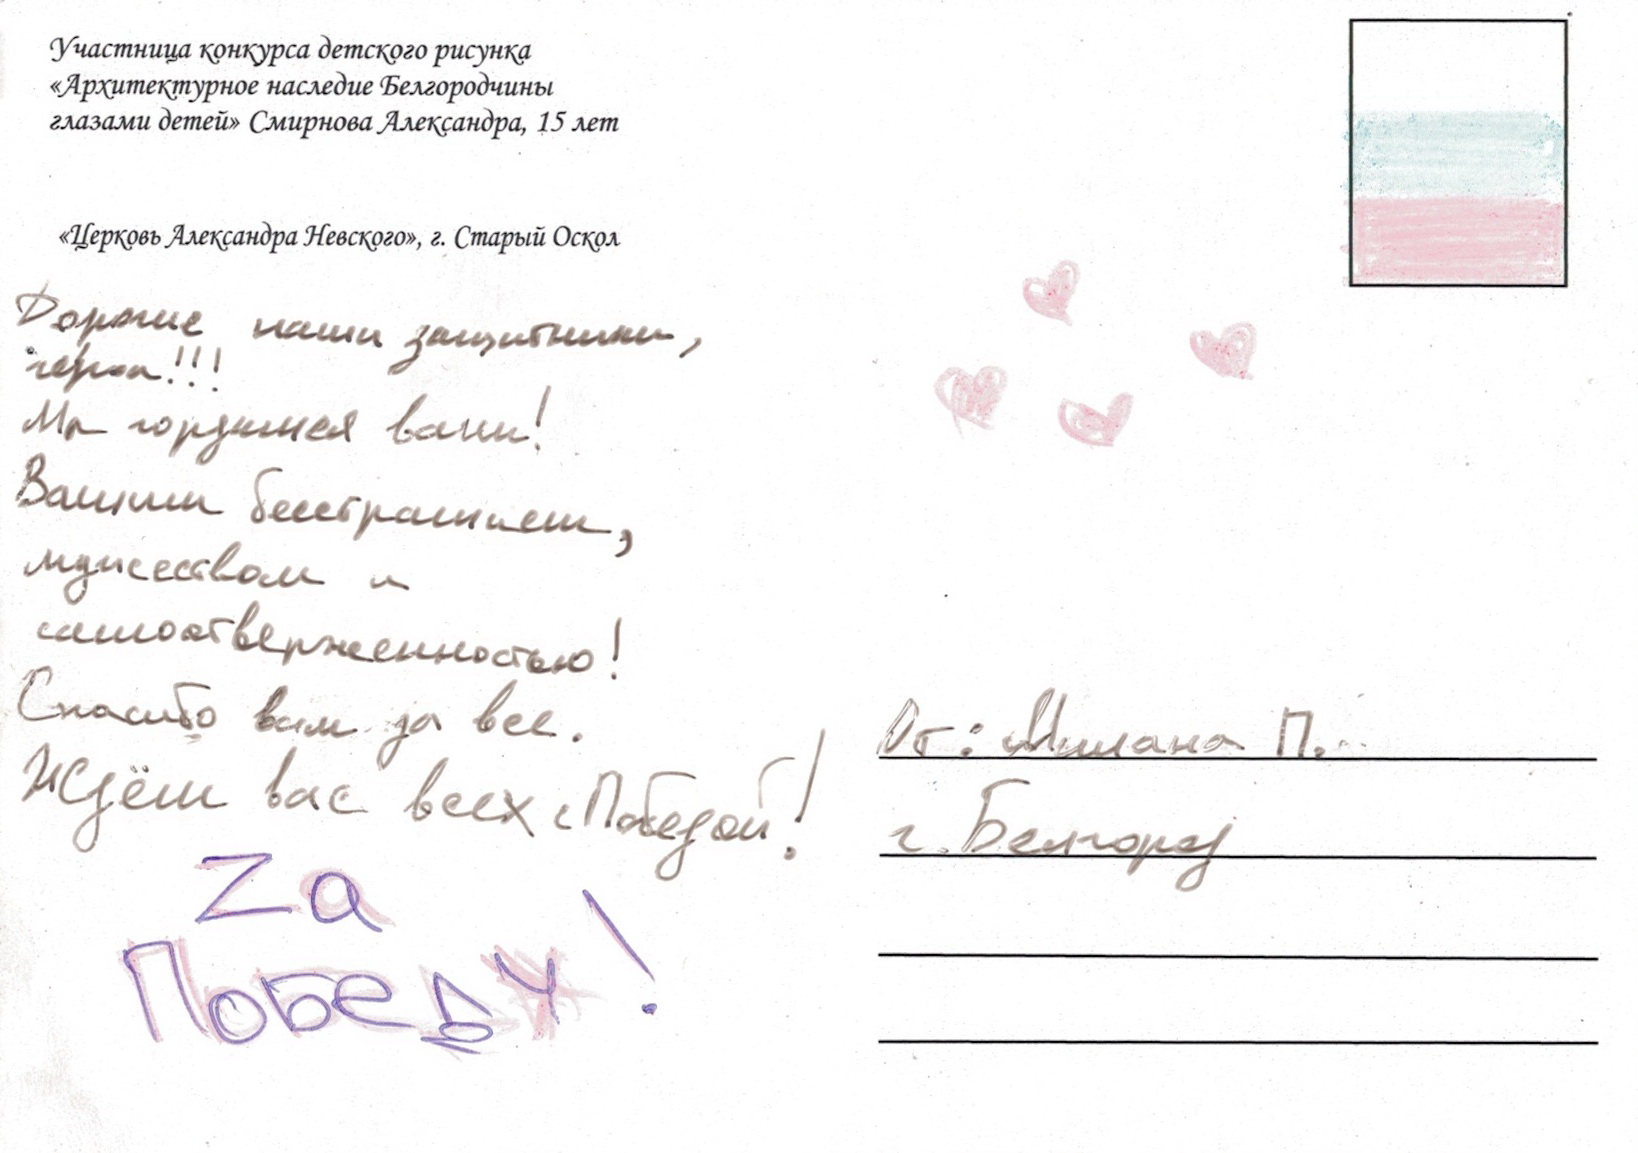 Участница конкурса детского рисунка
«Архитектурное наследие Белгородчины
глазами детей» Смирнова Александра, 15 лет
«Церковь Александра Невского», г. Старый Оскол
Дорогие наши защитники,
герои!!!
Мы гордимся вами!
Вашим бесстрашием,
мужеством и
самоотверженностью!
Спасибо вам за все.
Ждём вас всех с Победой!
Zа
Победу!
От: Милана П.
г. Белгород